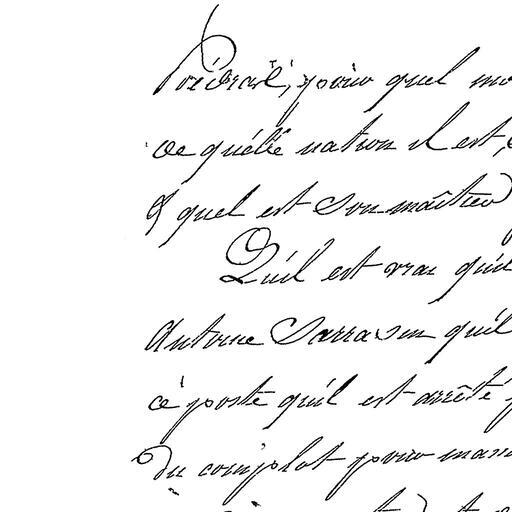 pour quel
de quéllé nation il est,
& quel est Son maître
Qu'il est vrai qu'il
Antoine Sarrasin qu'il
cé poste qu'il est arrêté
Du complot pour